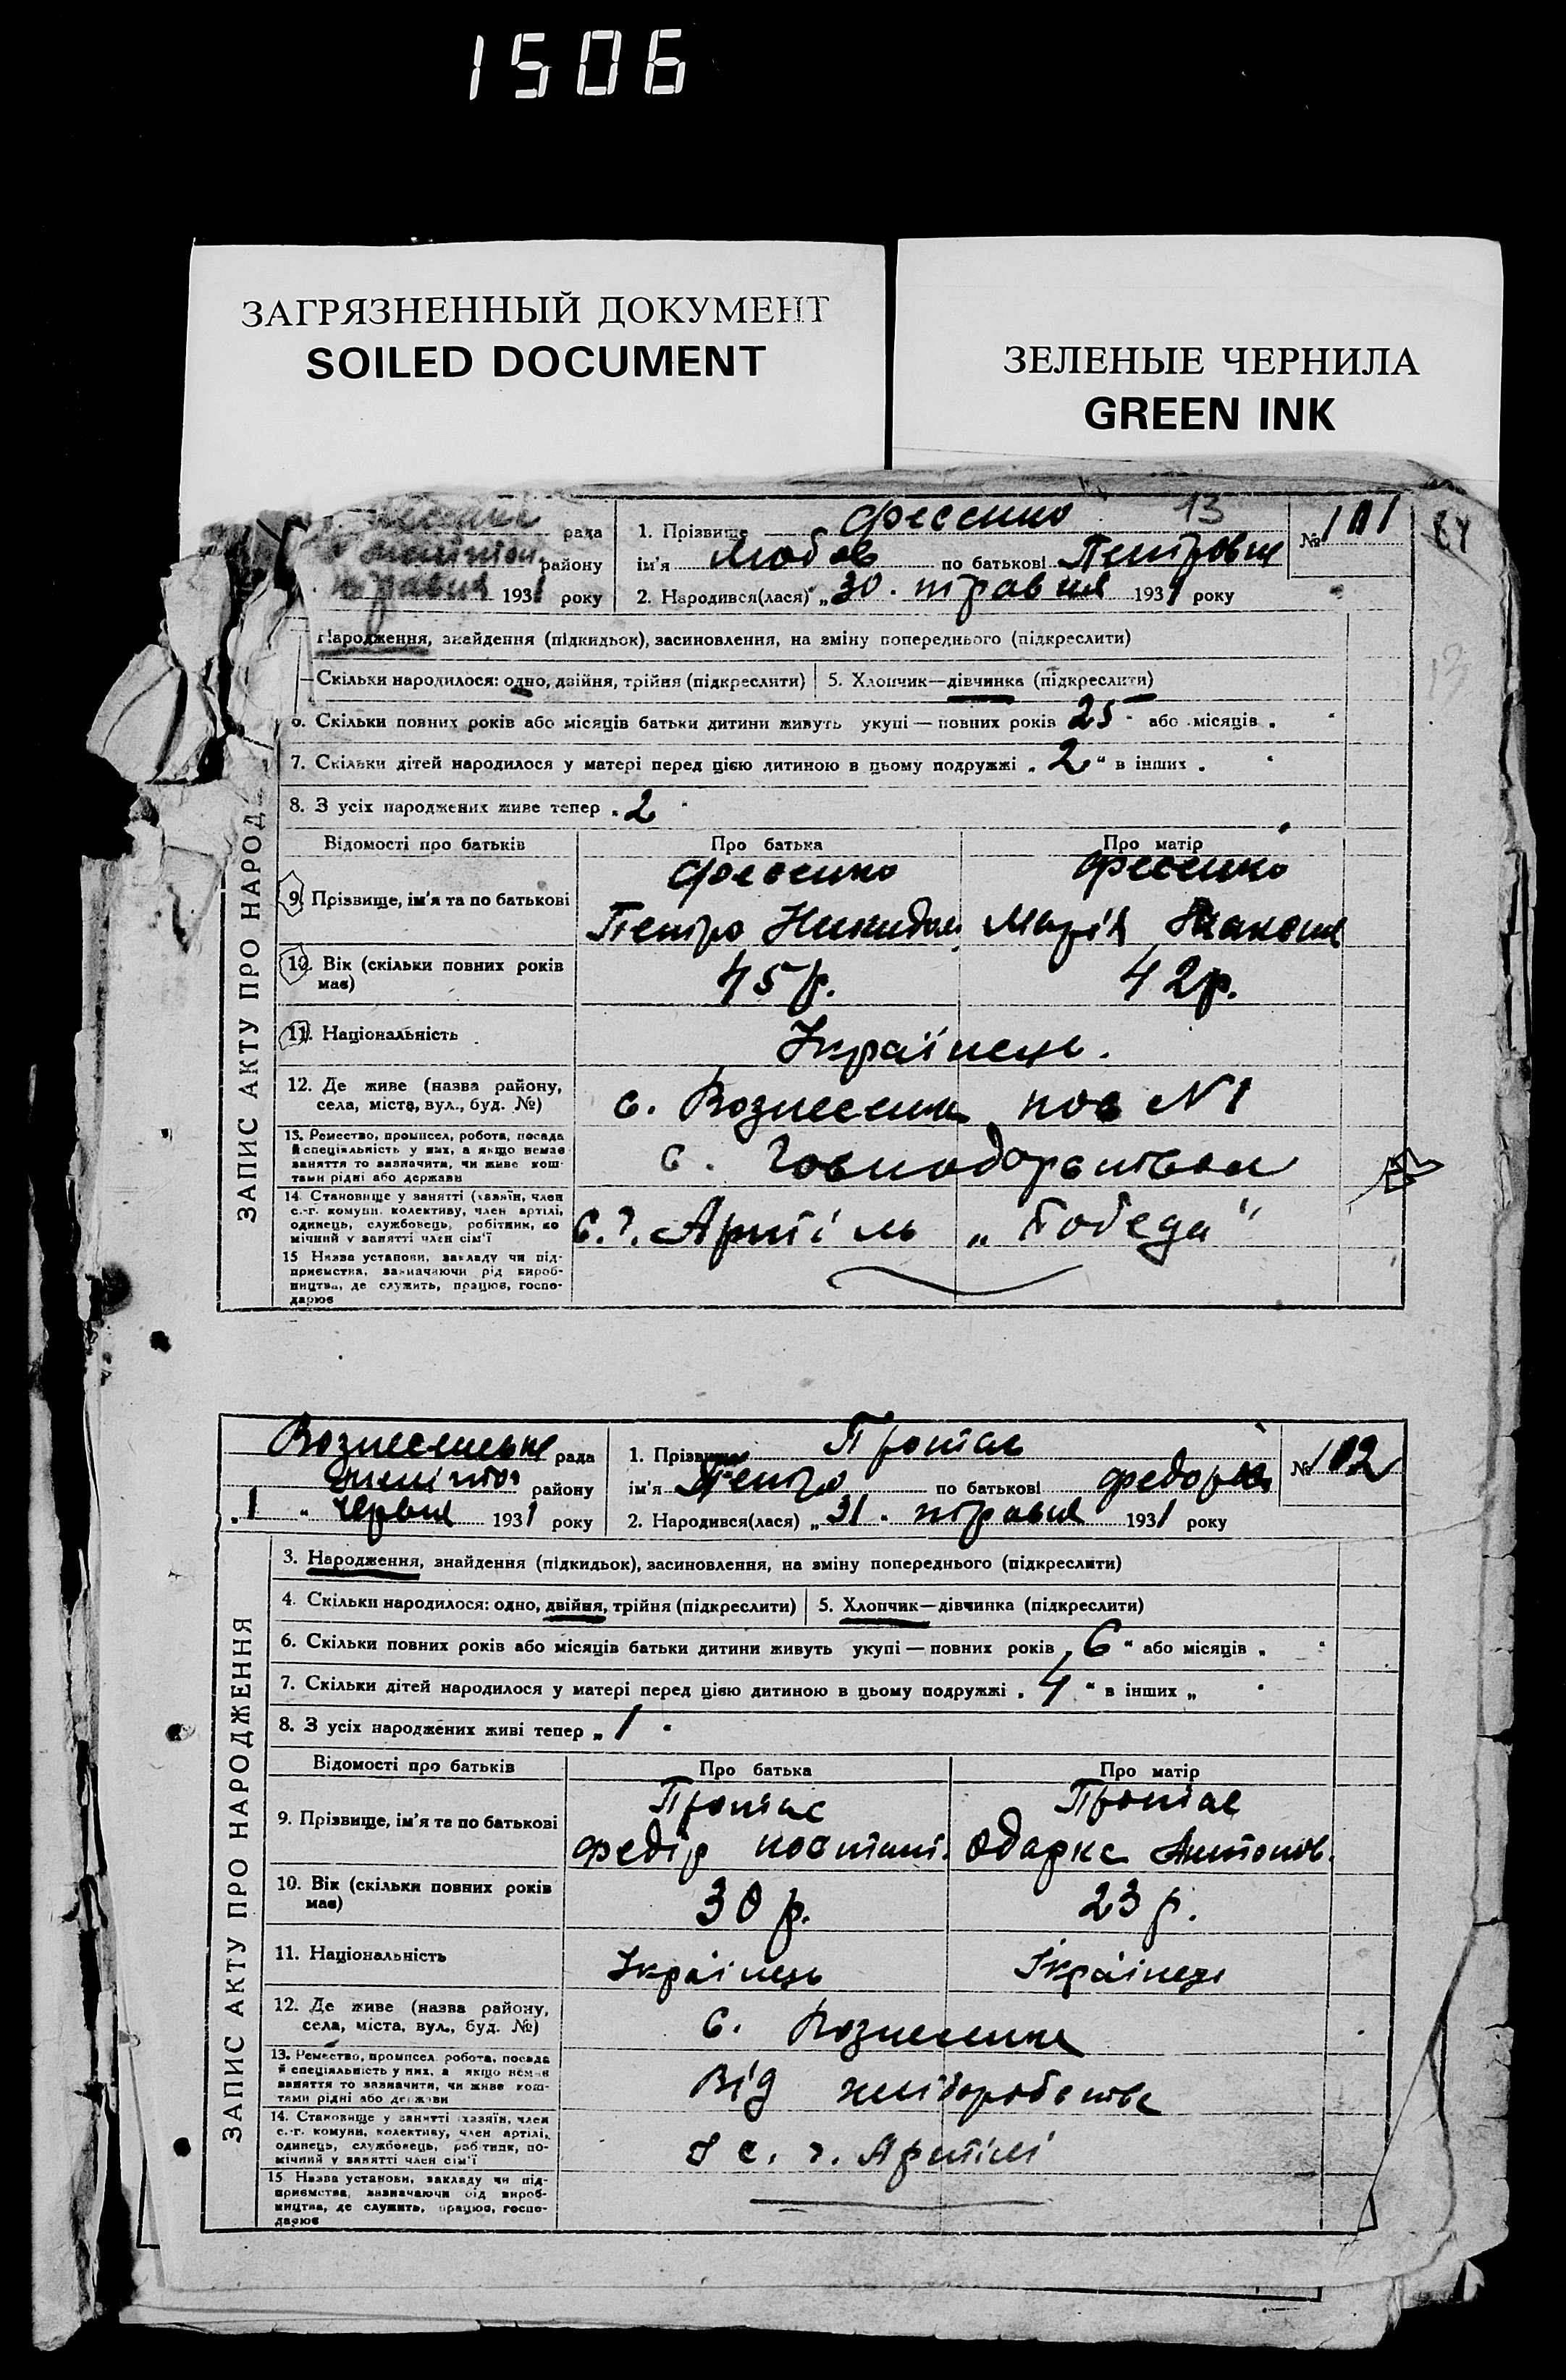 1506
ЗАГРЯЗНЕННЫЙ ДОКУМЕНТ
SOILED DOCUMENT
ЗЕЛЕНЫЕ ЧЕРНИЛА
GREEN INK
рада
району
травня 1931 року
1. Прізвище Фесенко 13
ім'я Любов по батькові Петровна
2. Народився(лася) „30. травня 1931 року
№ 101
84
Народження, знайдення (підкидьок), засиновлення, на зміну попереднього (підкреслити)
Скільки народилося: одно, двійня, трійня (підкреслити) 5. Хлопчик—дівчинка (підкреслити)
6. Скільки повних років або місяців батьки дитини живуть укупі — повних років 25 або місяців
7. Скільки дітей народилося у матері перед цією дитиною в цьому подружжі „ 2 “ в інших
8. З усіх народжених живе тепер „ 2
ЗАПИС АКТУ ПРО НАРОД
Відомості про батьків Про батька Про матір
9. Прізвище, ім'я та по батькові
Фесенко Фесенко
Петро Марія
10. Вік (скільки повних років має)
45 р. 42 р.
11. Національність
Українець.
12. Де живе (назва району, села, міста, вул., буд. №)
с. Вознесенка №1
13. Ремество, промисел, робота, посада
й спеціяльність у них, а якщо немає
заняття то зазначити, чи живе кош-
тами рідні або держави
с.
14. Становище у занятті (хазяїн, член
с.-г. комуни, колективу, член артілі,
одинець, службовець, робітник, по
мічний у занятті член сім'ї
с.г. Артіль „Победа“
15 Назва установи, закладу чи під-
приємства, зазначаючи рід вироб-
ництва, де служить, працює, госпо-
дарює
Вознесенська рада
району
„1 “ червня 1931 року
1. Прізвище Протас
ім'я Петро по батькові Федоров
2. Народився(лася) „31. травня 1931 року
№ 102
3. Народження, знайдення (підкидьок), засиновлення, на зміну попереднього (підкреслити)
4. Скільки народилося: одно, двійня, трійня (підкреслити) 5. Хлопчик—дівчинка (підкреслити)
6. Скільки повних років або місяців батьки дитини живуть укупі — повних років „ 6 “ або місяців „
7. Скільки дітей народилося у матері перед цією дитиною в цьому подружжі „ 4 “ в інших „
8. З усіх народжених живі тепер „ 1
ЗАПИС АКТУ ПРО НАРОДЖЕННЯ
Відомості про батьків Про батька Про матір
9. Прізвище, ім'я та по батькові
Протас Протас
Федір Одарка Антонов.
10. Вік (скільки повних років має)
30 р. 23 р.
11. Національність
Українець Українець
12. Де живе (назва району, села, міста, вул., буд. №)
с. Вознесенка
13. Ремество, промисел, робота, посада
й спеціяльність у них, а якщо немає
заняття то зазначити, чи живе кош-
тами рідні або держави
Від хліборобства
14. Становище у занятті (хазяїн, член
с.-г. комуни, колективу, член артілі,
одинець, службовець, робітник, по-
мічний у занятті член сім'ї
с. г. Артілі
15 Назва установи, закладу чи під-
приємства, зазначаючи рід вироб-
ництва, де служить, працює, госпо-
дарює